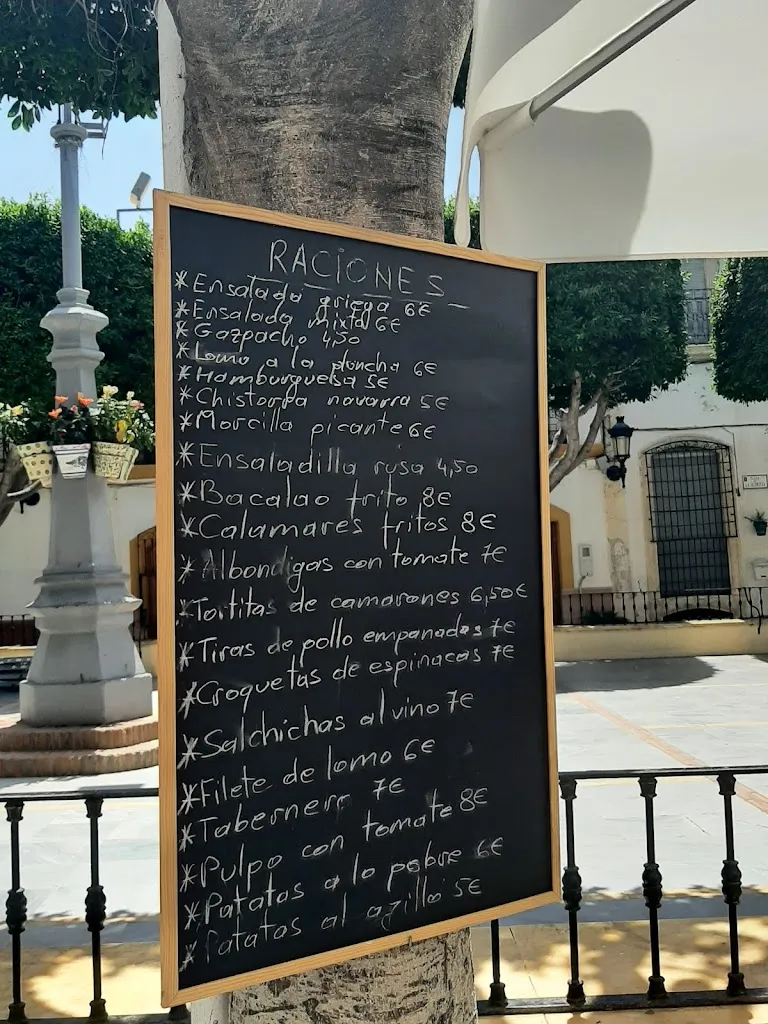 RACIONES
*Ensalada griega 6€
*Ensalada mixta 6€
*Gazpacho 4,50
*Lomo a la plancha 6€
*Hamburguesa 5€
*Chistorra navarra 5€
*Morcilla picante 6€
*Ensaladilla rusa 4,50
*Bacalao frito 8€
*Calamares fritos 8€
*Albondigas con tomate 7€
*Tortitas de camarones 6,50€
*Tiras de pollo empanadas 7€
*Croquetas de espinacas 7€
*Salchichas al vino 7€
*Filete de lomo 6€
*Tabernero 7€
*Pulpo con tomate 8€
*Patatas a lo pobre 6€
*Patatas al ajillo 5€